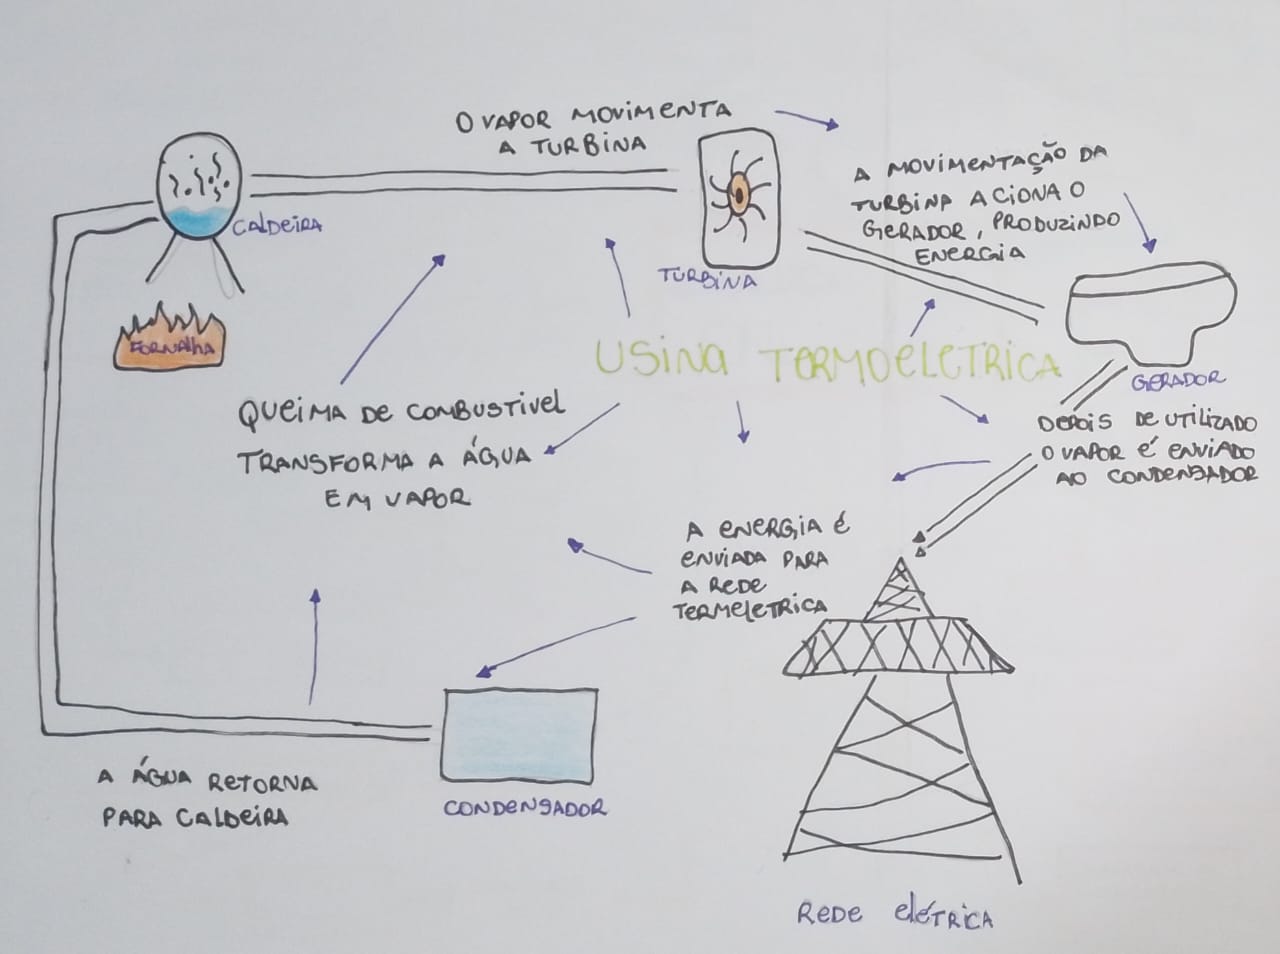 O VAPOR MOVIMENTA
A TURBINA
A MOVIMENTAÇÃO DA
TURBINA ACIONA O
GERADOR, PRODUZINDO
ENERGIA
CALDEIRA
TURBINA
FORNALHA
USINA TERMOELETRICA
GERADOR
QUEIMA DE COMBUSTIVEL
TRANSFORMA A ÁGUA
EM VAPOR
DEPOIS DE UTILIZADO
O VAPOR É ENVIADO
AO CONDENSADOR
A ENERGIA É
ENVIADA PARA
A REDE
TERMELETRICA
A ÁGUA RETORNA
PARA CALDEIRA
CONDENSADOR
REDE ELÉTRICA